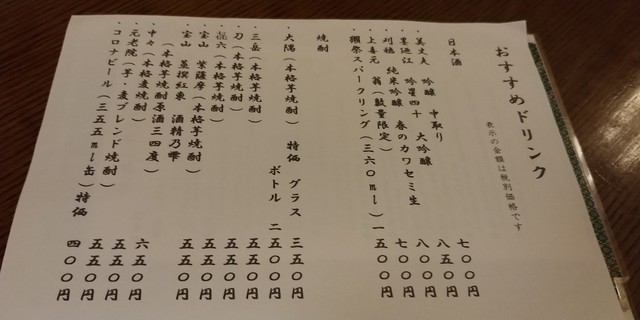 おすすめドリンク
表示の金額は税別価格です
日本酒
・美丈夫 吟醸 中取り 七〇〇円
・墨廼江 吟星四十 大吟醸 八五〇円
・刈穂 純米吟醸 春のカワセミ生 八〇〇円
・上喜元 翁(数量限定) 七〇〇円
・獺祭スパークリング(三六〇ml) 一五〇〇円
焼酎
・大隅(本格芋焼酎) 特価 グラス 三五〇円
ボトル 二五〇〇円
・三岳(本格芋焼酎) 五五〇円
・刀(本格芋焼酎) 五五〇円
・㐂六(本格芋焼酎) 五五〇円
・宝山 紫薩摩(本格芋焼酎) 五五〇円
・宝山 蒸撰紅東 酒精乃雫
(本格芋焼酎原酒三四度) 六五〇円
・中々(本格麦焼酎) 五五〇円
・元老院(芋・麦ブレンド焼酎) 五五〇円
・コロナビール(三五五ml缶)特価 四〇〇円